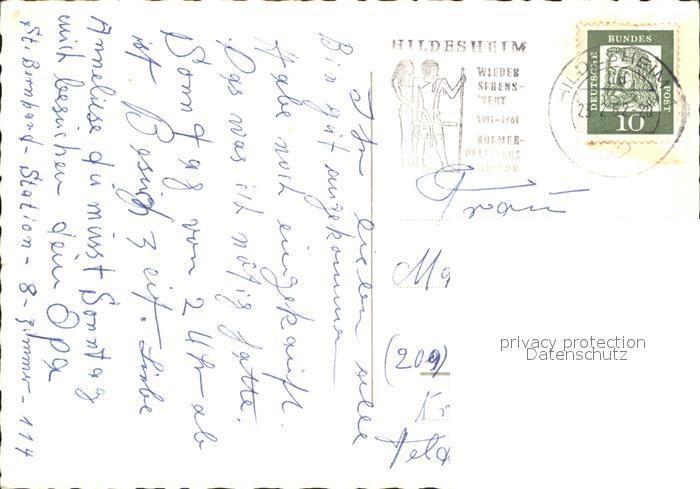 Ihr lieben alle
Bin gut angekommen
Habe noch eingekauft.
Das was ich nötig hatte.
Sonntag von 2 Uhr ab
ist Besuchzeit. Liebe
Anneliese du müsst Sonntag
mich besuchen dein Opa
St. Bernhard-Station-8-Zimmer-114
HILDESHEIM
WIEDER
SEHENS-
WERT
1911-1961
ROEMER-
PELIZAEUS
MUSEUM
HILDESHEIM
DEUTSCHE BUNDES POST
10
Frau
Ma
(209)
Kr
Feld
privacy protection
Datenschutz